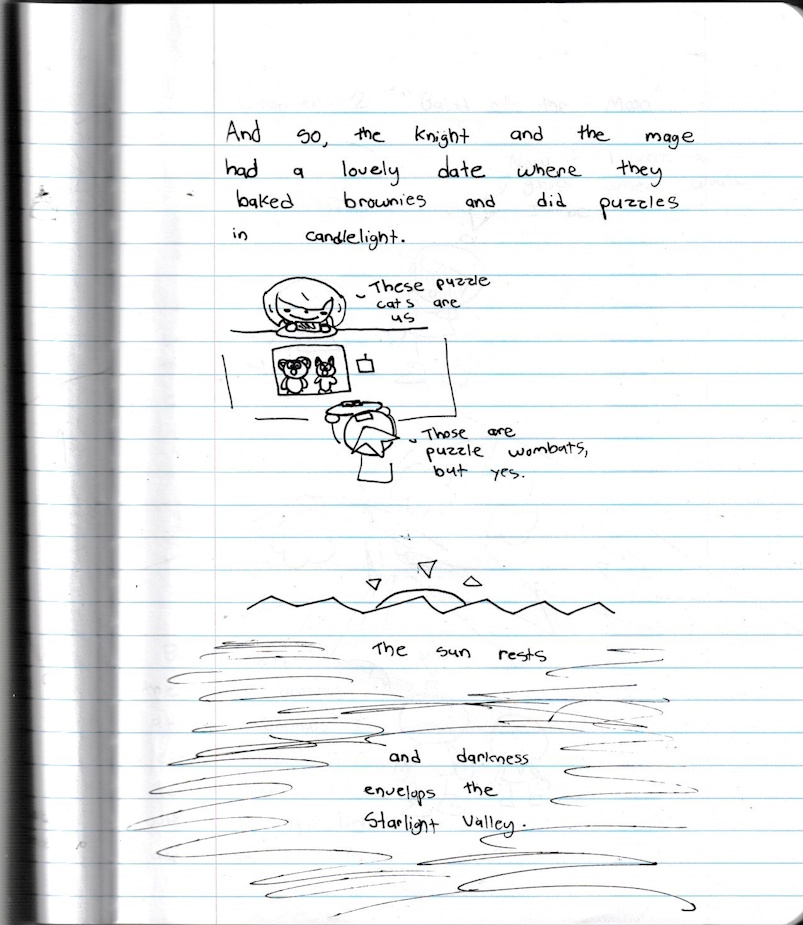 And so, the knight and the mage
had a lovely date where they
baked brownies and did puzzles
in candlelight.
These puzzle
cats are
us
Those are
puzzle wombats,
but yes.
The sun rests
and darkness
envelops the
Starlight Valley.